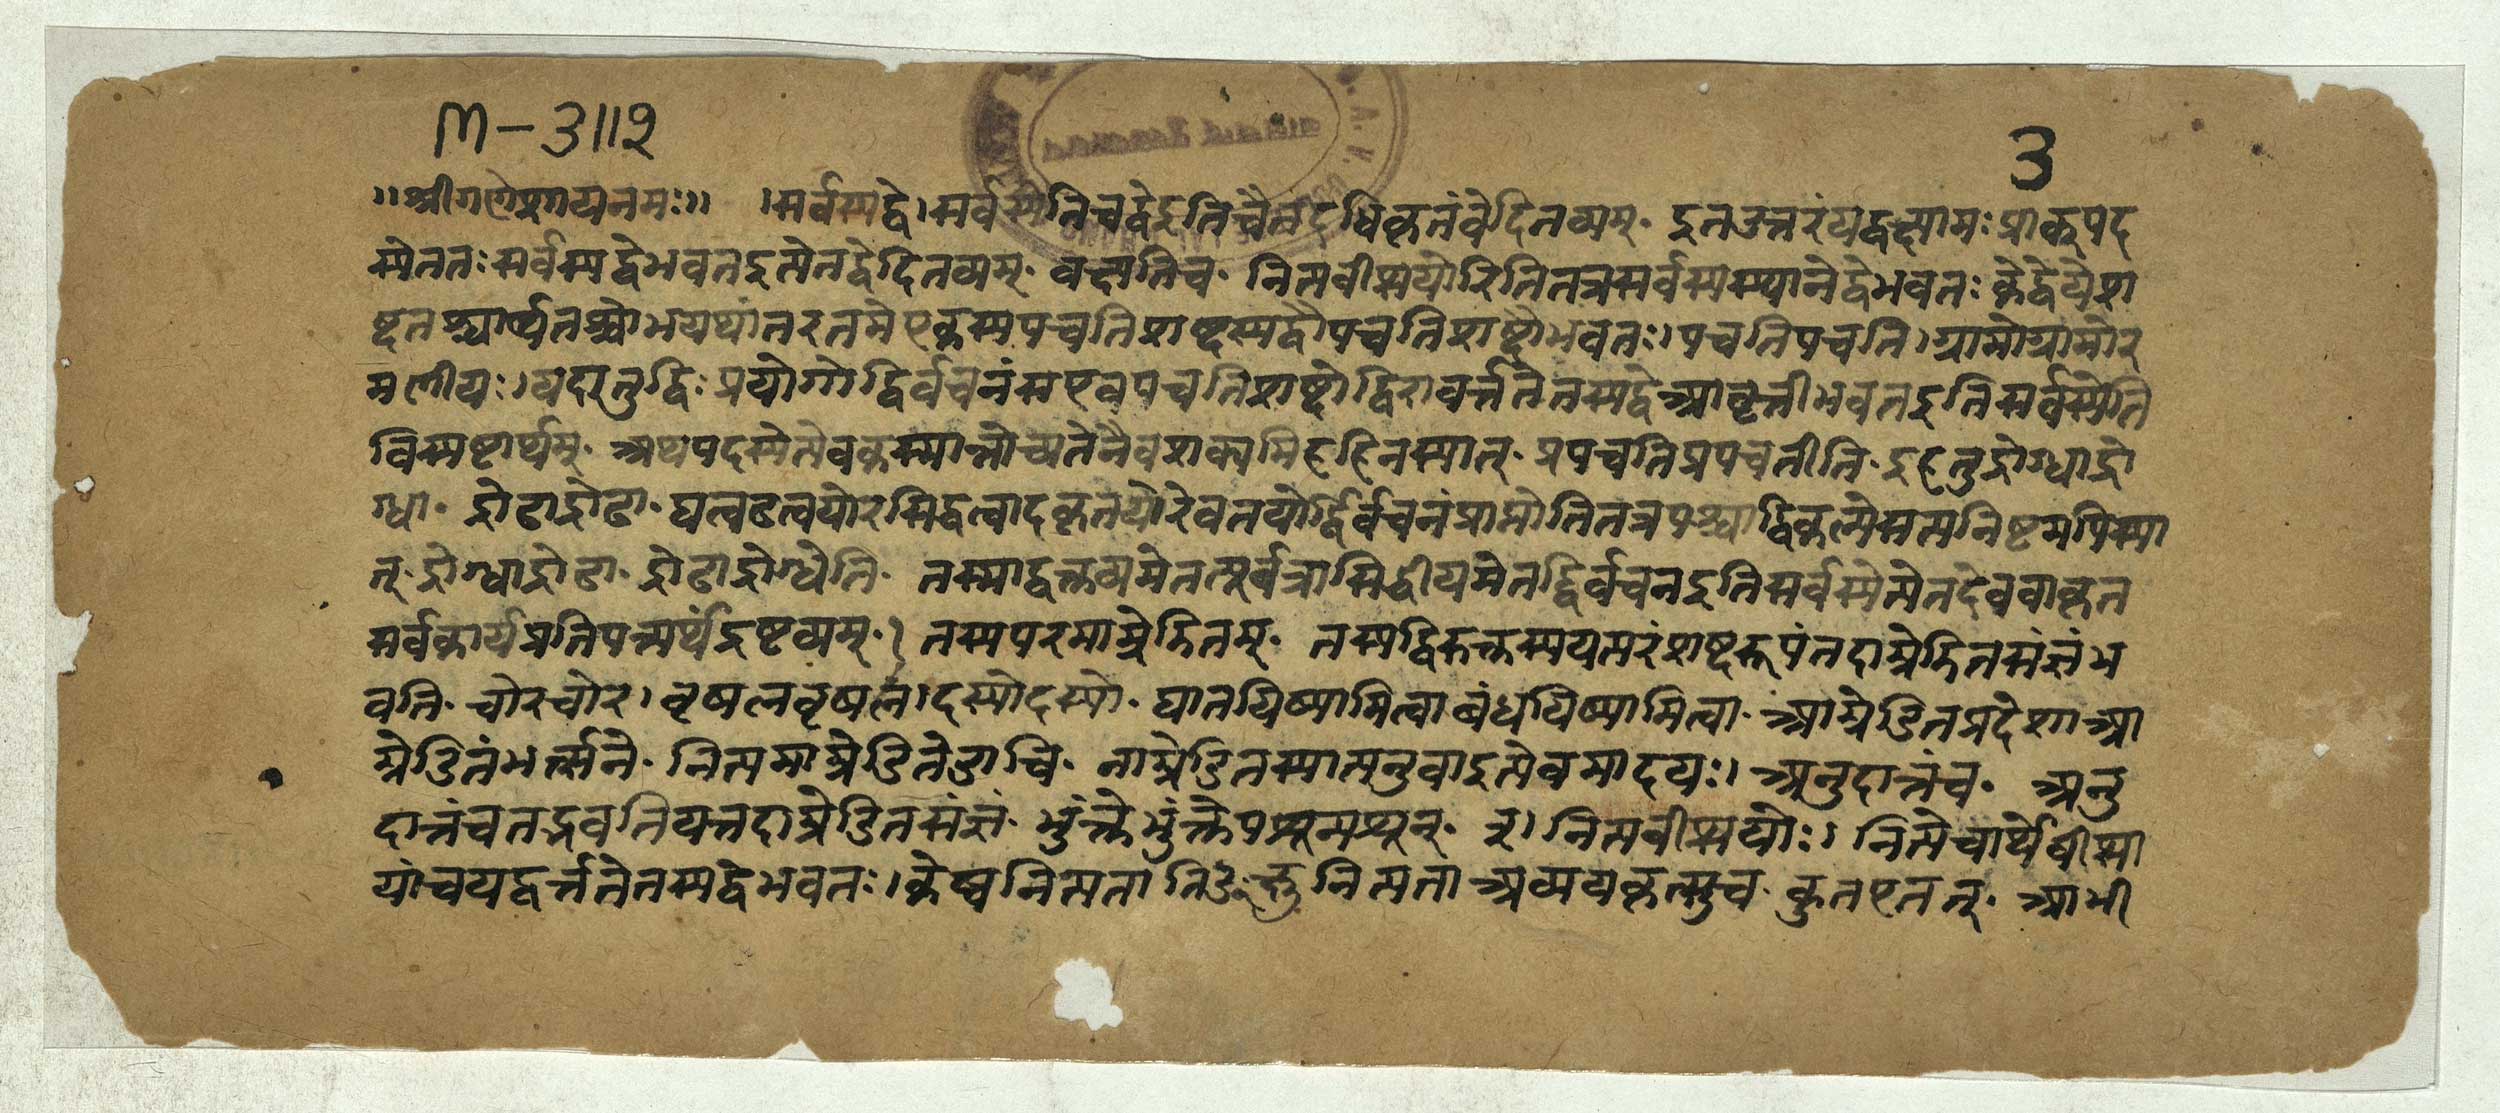 M - 3112
3
॥श्रीगणेशायनमः॥ ।सर्वस्यद्वे।सर्वस्येतिचद्वेइतिचैतदधिकृतंवेदितव्यम्· इतउत्तरंयद्वक्ष्यामः प्राक्पद
स्येततः सर्वस्यद्वेभवतइत्येतद्वेदितव्यम्· वक्ष्यतिच· नित्यवीप्सयोरितितत्रसर्वस्यस्थानेद्वेभवतः केद्वेयेश
ब्दतश्चार्थतश्चोभयथांतरतमेएकस्यपचतिशब्दस्यद्वौपचतिशब्दौभवतः।पचतिपचति।ग्रामोग्रामोर
मणीयः।यदातुद्विः प्रयोगोद्विर्वचनंसएवपचतिशब्दोद्विरावर्त्ततेतस्यद्वेआवृत्तीभवतइतिसर्वस्येति
विस्पष्टार्थम्· अथपदस्येत्येवकस्मान्नोच्यतेनैवशक्यमिहहिनस्यात्· प्रपचतिप्रपचतीति· इहतुद्रोग्धाद्रो
ग्धा· द्रोढाद्रोढा· घत्वढत्वयोरसिद्धत्वादकृतयोरेवतयोर्द्विर्वचनंप्राप्नोतितत्रपश्चाद्विकल्पेसत्यनिष्टमपिस्या
त्·द्रोग्धाद्रोढा· द्रोढाद्रोग्धेति· तस्माद्वक्तव्यमेतत्पूर्वत्रासिद्धीयमेतद्द्विर्वचनइतिसर्वस्येत्येतदेववाकृत
सर्वकार्यप्रतिपत्त्यर्थंद्रष्टव्यम्·। तस्यपरमाम्रेडितम्· तस्यद्विरुक्तस्ययत्परंशब्दरूपंतदाम्रेडितसंज्ञंभ
वति· चोरचोर।वृषलवृषल।दस्योदस्यो· घातयिष्यामित्वाबंधयिष्यामित्वा· आम्रेडितप्रदेशाआ
म्रेडितंभर्त्सने· नित्यमाम्रेडितेडाचि· नाम्रेडितस्यात्यनुवाइत्येवमादयः। अनुदात्तंच· अनु
दात्तंचतद्भवतियत्तदाम्रेडितसंज्ञं· भुंक्तेभुंक्तेपशून्पशून्· २।नित्यवीप्सयोः।नित्येचार्थेवीप्सा
यांचयद्वर्त्ततेतस्यद्वेभवतः।केष्वनित्यतातिङ्क्षुनित्यताअव्ययकृत्सुच·कुतएतत्· आभी